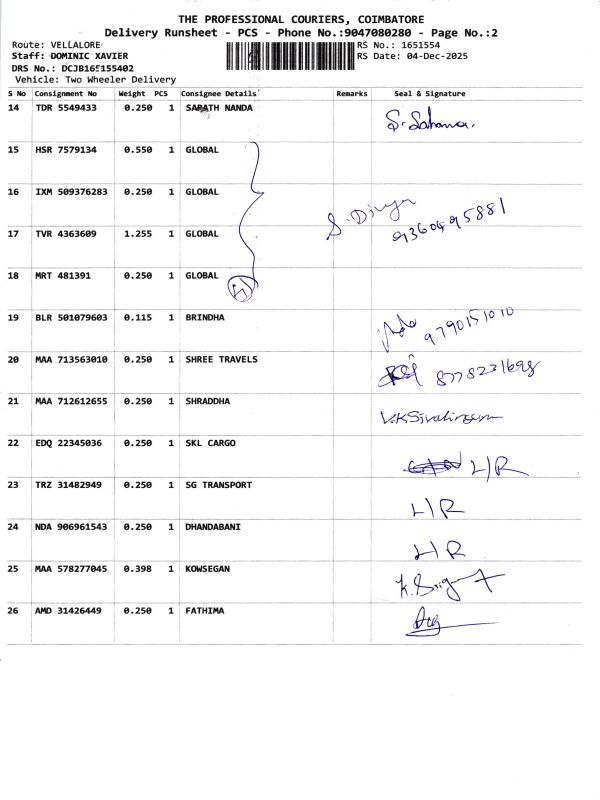 THE PROFESSIONAL COURIERS, COIMBATORE
Delivery Runsheet - PCS - Phone No.:9047080280 - Page No.:2
Route: VELLALORE RS No.: 1651554
Staff: DOMINIC XAVIER RS Date: 04-Dec-2025
DRS No.: DCJB165155402
Vehicle: Two Wheeler Delivery
S No Consignment No Weight PCS Consignee Details Remarks Seal & Signature
14 TDR 5549433 0.250 1 SARATH NANDA
S. Sahana.
15 HSR 7579134 0.550 1 GLOBAL
16 IXM 509376283 0.250 1 GLOBAL
S. Divya 9360495881
17 TVR 4363609 1.255 1 GLOBAL
18 MRT 481391 0.250 1 GLOBAL
4
19 BLR 501079603 0.115 1 BRINDHA
9790151010
20 MAA 713563010 0.250 1 SHREE TRAVELS
8778231698
21 MAA 712612655 0.250 1 SHRADDHA
V.K Sivalingam
22 EDQ 22345036 0.250 1 SKL CARGO
L/R
23 TRZ 31482949 0.250 1 SG TRANSPORT
L/R
24 NDA 906961543 0.250 1 DHANDABANI
L/R
25 MAA 578277045 0.398 1 KOWSEGAN
26 AMD 31426449 0.250 1 FATHIMA